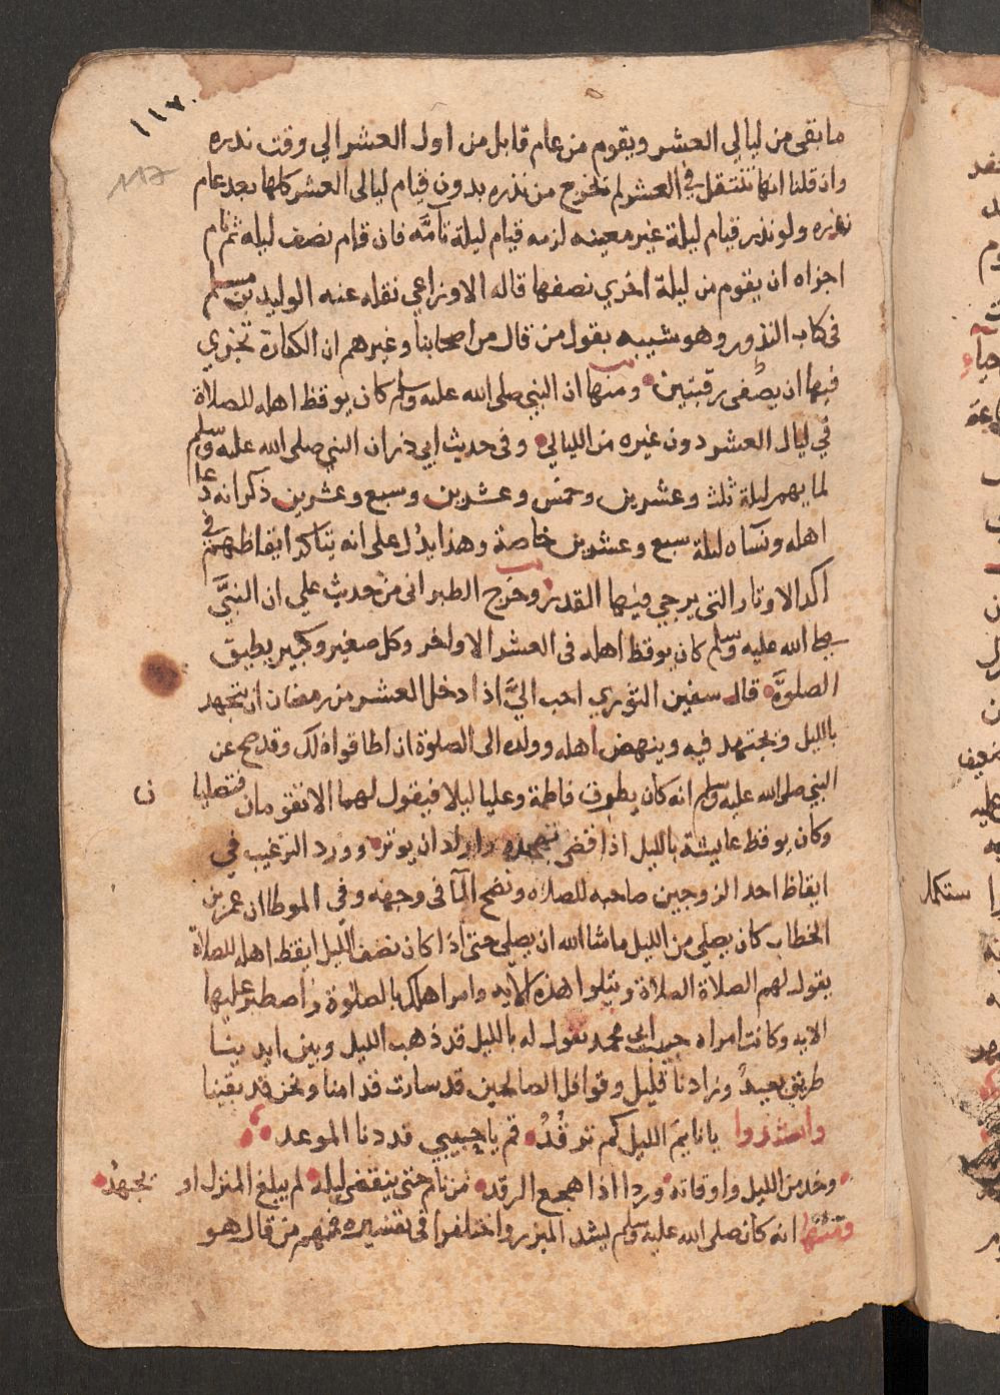 ١١٧
117
ما بقى من ليالي العشر ويقوم من عام قابل من اول العشر الي وقت نذره
وان قلنا انها تنتقل في العشر لم تخرج من نذره بدون قيام ليالى العشر كلها بعد عام
نذره ولو نذر قيام ليلة غير معينه لزمه قيام ليلة تامَّه فان قام نصف ليله ثم نام
اجزاه ان يقوم من ليلة اخري نصفها قاله الاوزاعي نقله عنه الوليد بن مسلم
فى كتاب النذور وهو شبيه بقول من قال من اصحابنا وغيرهم ان الكفارة تجزي
فيها ان يصفى رقبتين ومنها ان النبي صلى الله عليه وسلم كان يوقظ اهله للصلاة
في ليال العشر دون غيره من الليالي وفى حديث ابي ذر ان النبي صلى الله عليه وسلم
لما بهم ليلة ثلث وعشرين وخمس وعشرين وسبع وعشرين ذكر انه دعا
اهله ونسآه ليلة سبع وعشرين خاصة وهذا يدُل على انه يتاكد ايقاظهم في
اكد الاوتار التى يرجي فيها القدر وخرج الطبرانى من حديث علي ان النبيَّ
صلى الله عليه وسلم كان يوقظ اهله فى العشر الاواخر وكل صغير وكبير يطيق
الصلوَة قال سفين الثوري احب اليَّ اذا دخل العشر من رمضان ان يتهجد
بالليل ويجتهد فيه وينهض اهله وولده الى الصلوة ان اطاقوا ذلك وقد صح عن
النبي صلى الله عليه وسلم انه كان يطرق فاطمة وعليا ليلا فيقول لهما الا تقومان فتصليان
وكان يوقظ عايشة بالليل اذا قضى تهجده واراد ان يوتر وورد الترغيب في
ايقاظ احد الزوجين صاحبه للصلاه ونضح المآ فى وجهه وفي الموطا ان عمر بن
الخطاب كان يصلي من الليل ما شا الله ان يصلى حتى اذا كان نصف الليل ايقظ اهله للصلاة
يقول لهم الصلاة الصلاة ويتلوا هذه الايه وامر اهلك بالصلوة واصطبر عليها
الايه وكانت امراه حبيب ابي محمد تقول له بالليل قد ذهب الليل وبين ايدينا
طريق بعيدُ وزادنا قليل وقوافل الصالحين قد سارت قدامنا ونحن قد بقينا
وانشدوا يا نايمَ الليل كم ترقُدُ قم يا حبيبي قد دنا الموعد
وخذ من الليل واوقاته وردا اذا هجع الرقد من نام حتى ينقضى ليله لم يبلغ المنزل او يجهدُ
ومنها انه كان صلى الله عليه وسلم يشد الميزر واختلفوا فى تفسيره فمنهم من قال هو